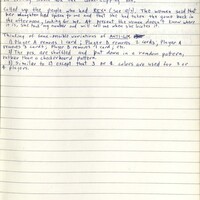 called up the people who had REX (see 8/1). The woman said that
her daughter had spoken to me and that she had taken the game back in
the afternoon, looking for me. At present the woman doesn't know where
it is, she had my number and will call me when she locates it.
Thinking of some possible variations of
1) Player A removes 1 card; Player B removes 2 cards, Player A
removes 3 cards, Player B removes 4 card, etc.
2) The are shuffled and put down in a random pattern,
rather than a checkerboard pattern.
3) Similar to 2) except that 3 or 4 colors are used for 3 or
4 players.